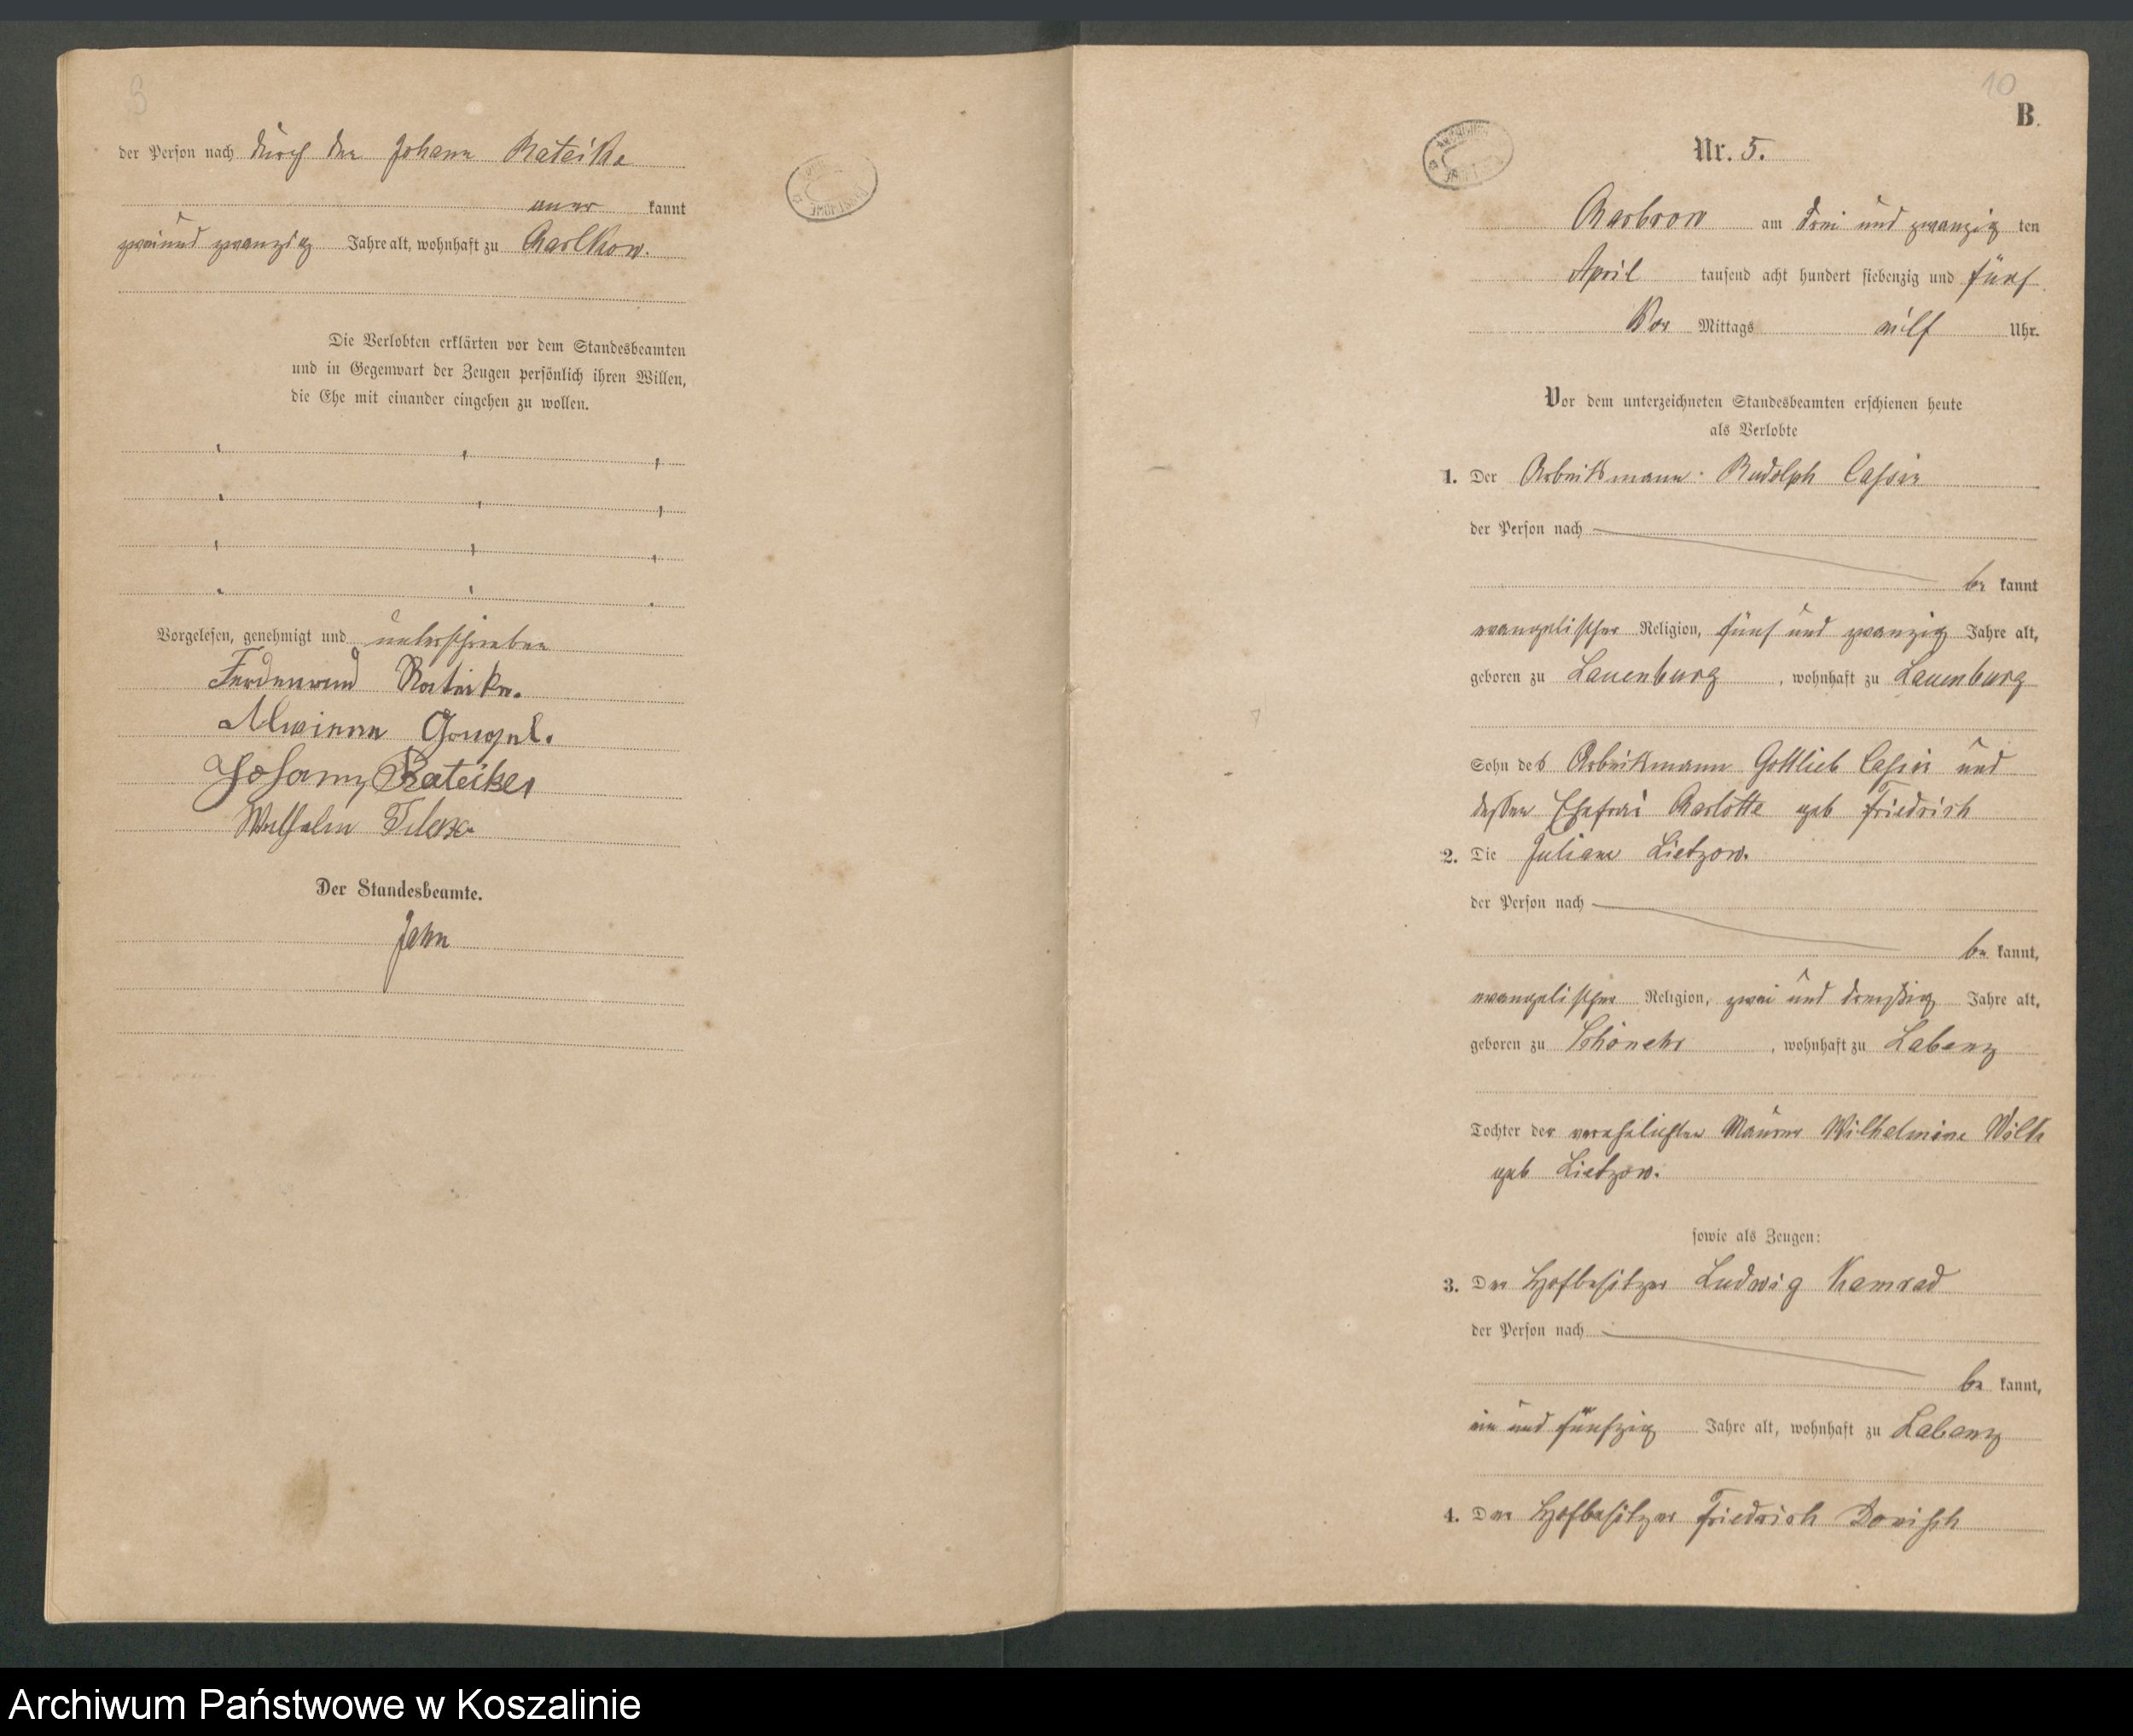 9
der Person nach durch den Johann Rateike
aner kannt
zweiund zwanzig Jahre alt, wohnhaft zu Charlkow.
Die Verlobten erklärten vor dem Standesbeamten
und in Gegenwart der Zeugen persönlich ihren Willen,
die Ehe mit einander eingehen zu wollen.
Vorgelesen, genehmigt und unterschrieben
Ferdenand Rateike.
Alwiene
Johann Rateike
Wilhelm
Der Standesbeamte.
Jahn
10
B.
Nr. 5.
Charbrow am drei und zwanzig ten
April tausend acht hundert siebenzig und fünf
Vor Mittags eilf Uhr.
Vor dem unterzeichneten Standesbeamten erschienen heute
als Verlobte
1. Der Arbeitsmann Rudolph
der Person nach
be kannt
evangelischer Religion, fünf und zwanzig Jahre alt,
geboren zu Lauenburg, wohnhaft zu Lauenburg
Sohn des Arbeitsmann Gottlieb und
dessen Ehefrau Charlotte geb Friedrich
2. Die Juliane Lietzow.
der Person nach
be kannt,
evangelischer Religion, zwei und dreißig Jahre alt,
geboren zu Schönehr, wohnhaft zu Labenz
Tochter der verehelichten Maurer Wilhelmine Wilke
geb Lietzow.
sowie als Zeugen:
3. Der Hofbesitzer Ludwig Kamrad
der Person nach
be kannt,
ein und fünfzig Jahre alt, wohnhaft zu Labenz
4. Der Hofbesitzer Friedrich
Archiwum Państwowe w Koszalinie